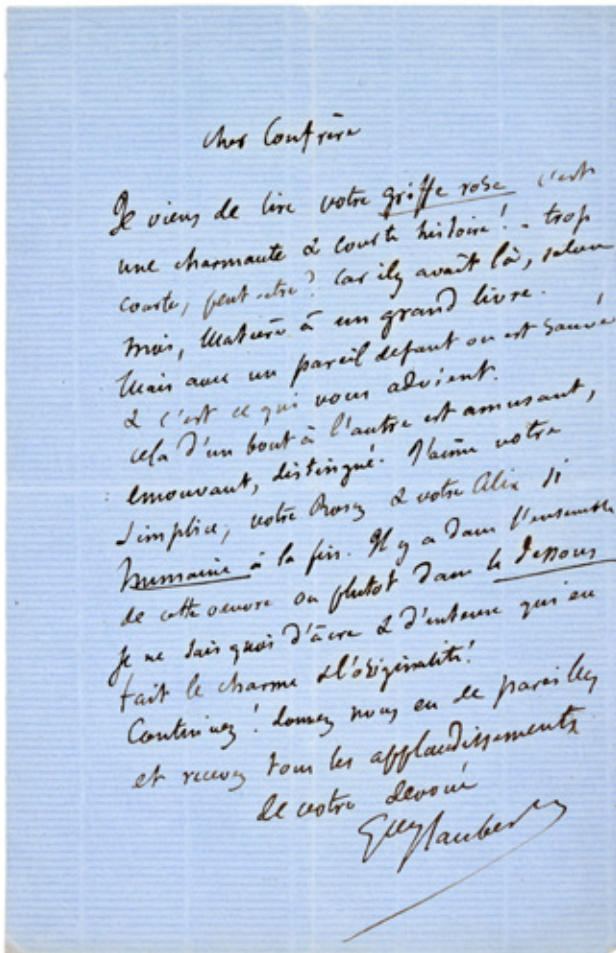 cher Confrère
Je viens de lire votre griffe rose c'est
une charmante & courte histoire! - trop
courte, peut-être? car il y avait là, selon
moi, matière à un grand livre.
Mais avec un pareil defaut on est sauvé
& c'est ce qui vous advient.
cela d'un bout à l'autre est amusant,
emouvant, distingué. J'aime votre
Simplice, votre Rosey & votre Alix si
humaine à la fin. Il y a dans l'ensemble
de cette oeuvre ou plutot dans le dessous
je ne sais quoi d'âcre & d'intense qui en
fait le charme & l'originalité!
Continuez! donnez nous en de pareilles
et recevez tous les applaudissements
de votre devoué
Gve Flaubert